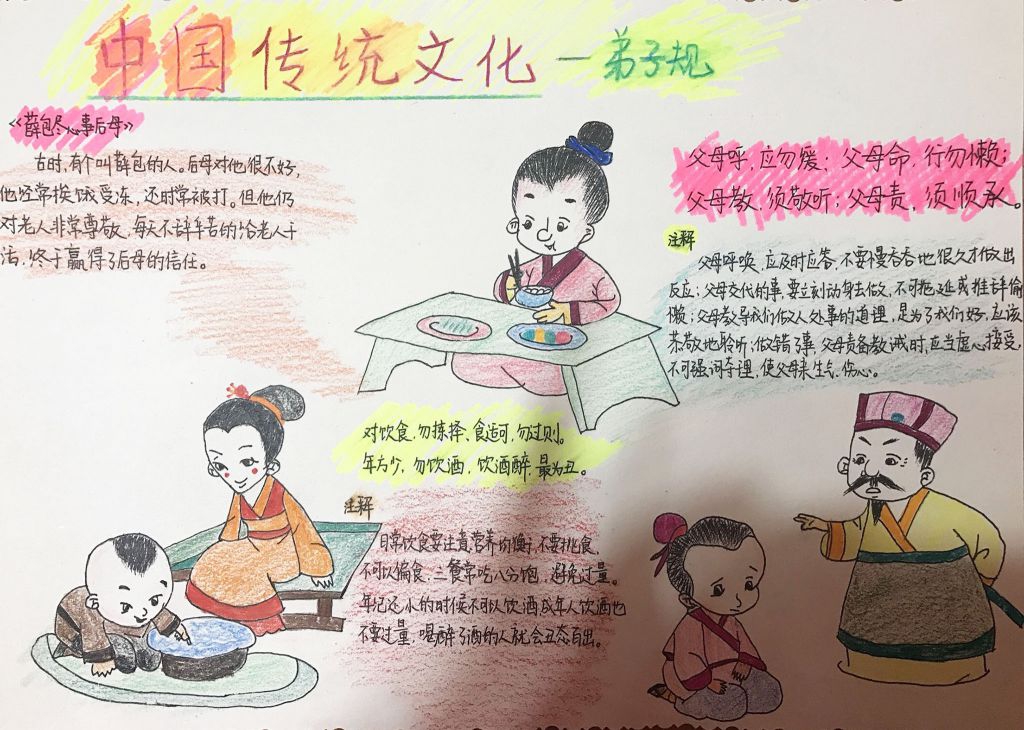 中国传统文化—弟子规
《薛包尽心事后母》
古时,有个叫薛包的人。后母对他很不好,
他经常挨饿受冻,还时常被打。但他仍
对老人非常尊敬,每天不辞辛苦的给老人干
活,终于赢得了后母的信任。
父母呼,应勿缓;父母命,行勿懒;
父母教,须敬听;父母责,须顺承。
注释
父母呼唤,应及时应答,不要慢吞吞地很久才做出
反应;父母交代的事,要立刻动身去做,不可拖延或推辞偷
懒;父母教导我们做人处事的道理,是为了我们好,应该
恭敬地聆听;做错了事,父母责备教诫时,应当虚心接受,
不可强词夺理,使父母亲生气、伤心。
对饮食,勿拣择、食适可,勿过则。
年方少,勿饮酒,饮酒醉,最为丑。
注释
日常饮食要注意营养均衡,不要挑食,
不可以偏食,三餐常吃八分饱,避免过量。
年纪还小的时候不可以饮酒成年人饮酒也
不要过量,喝醉了酒的人就会丑态百出。